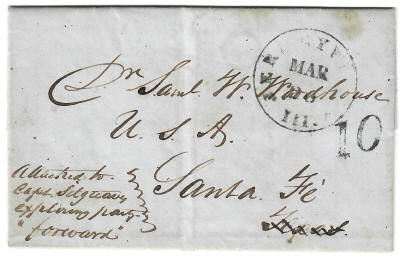 MAR
Ill.
Dr. Saml. W. Woodhouse
U. S. A.
10
Santa Fé
Texas
Attached to
Capt. Sitgreaves
exploring party
"forward"